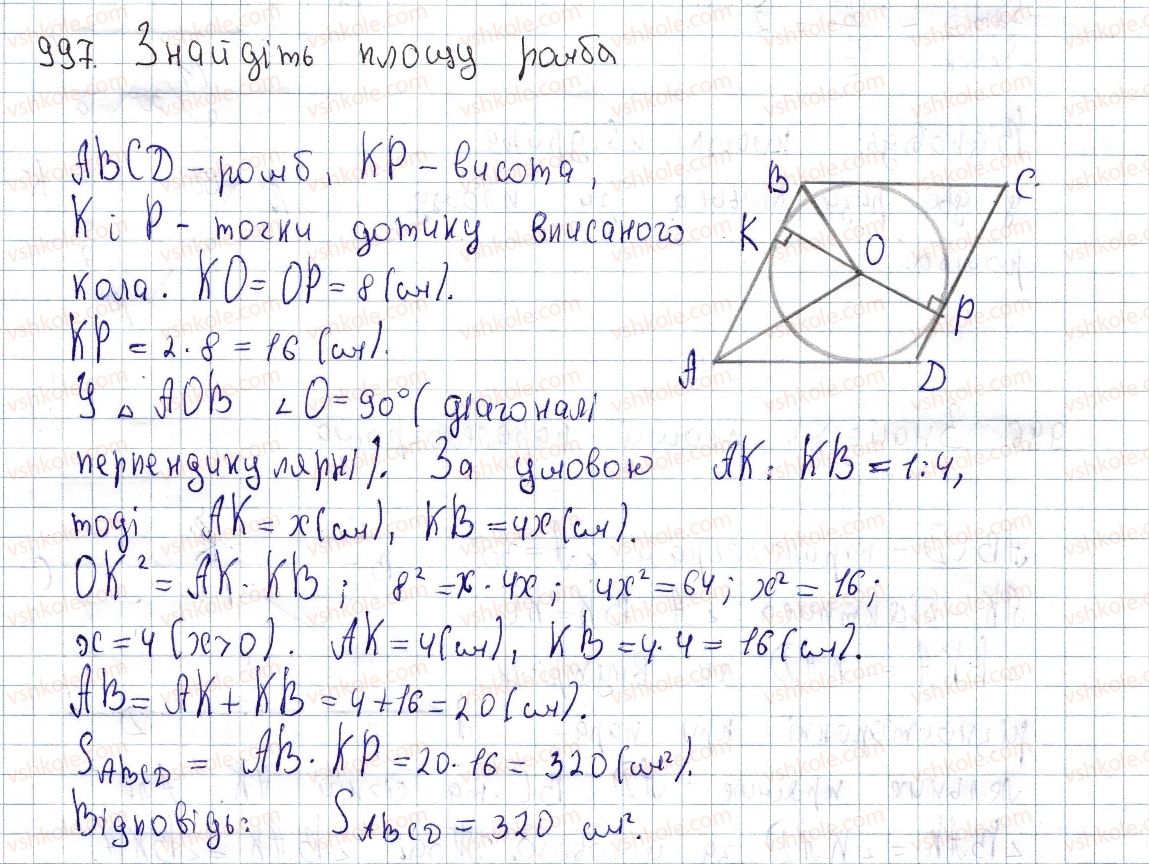 997. Знайдіть площу ромба
ABCD – ромб, KP – висота,
K і P – точки дотику вписаного
кола. KO = OP = 8 (см).
KP = 2 · 8 = 16 (см).
У △ AOB ∠O = 90° (діагоналі
перпендикулярні). За умовою AK : KB = 1 : 4,
тоді AK = x (см), KB = 4x (см).
OK² = AK · KB; 8² = x · 4x; 4x² = 64; x² = 16;
x = 4 (x > 0). AK = 4 (см), KB = 4 · 4 = 16 (см).
AB = AK + KB = 4 + 16 = 20 (см).
S ABCD = AB · KP = 20 · 16 = 320 (см²).
Відповідь: S ABCD = 320 см².
B
C
K
O
P
A
D
vshkole.com